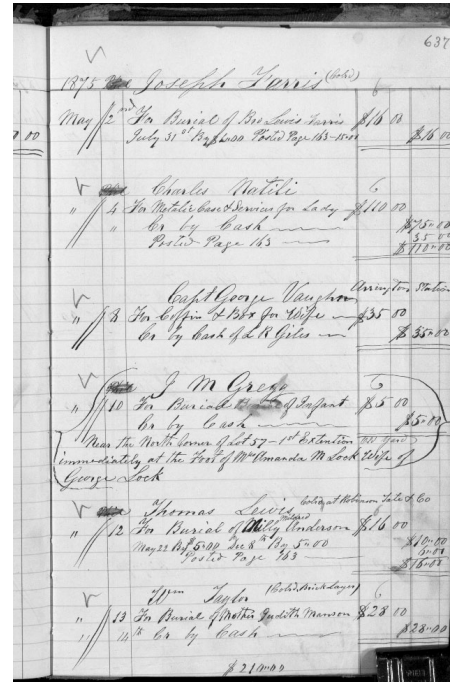 637
1875 Joseph Farris (Cold)
May 2nd For Burial of Bro Lewis Farris $16 00
July 31st By 00 Posted Page 163 - 15=00 $16 00
Charles Natili 6
" 4 For Metalic Case & Services for Lady $110 00
" Cr by Cash $75=00
Posted Page 163 35 00
$110=00
Capt George Vaughn Arrington Station
" 8 For Coffin & Box for Wife $35 00
Cr by Cash of L R Giles $35=00
J M Grego 6
" 10 For Burial of Infant $5 00
Cr by Cash $5=00
Near the North Corner of Lot 57 - 1st Extention Old Yard
immediately at the Foot of Mrs Amanda M Lock Wife of
George Lock
Thomas Lewis Cold at Robinson Tate & Co
Mildred
" 12 For Burial of Milly Anderson $16 00
May 22 By $5=00 Dec 8th By 5=00 $10=00
Posted Page 163 6=00
$16=00
Wm Taylor (Cold Brick Layer) 6
" 13 For Burial of Mother Judith Manson $28 00
" 14th Cr by Cash $28=00
$210=00